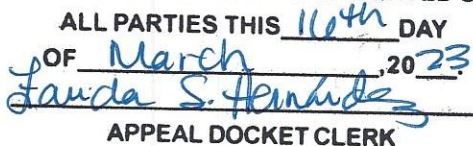 ALL PARTIES THIS 16th DAY
OF March, 2023
S. Hernandez
APPEAL DOCKET CLERK